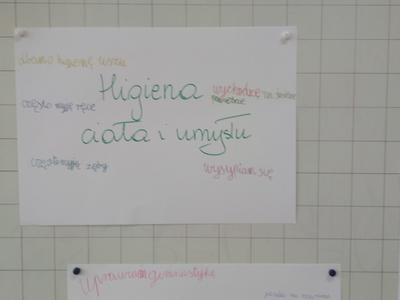 dbamo higienę uszu
Higiena
wychodzę na świeże
powietrze
często myję ręce
ciała i umysłu
często myję zęby
wysypiam się
Uprawiam gimnastykę